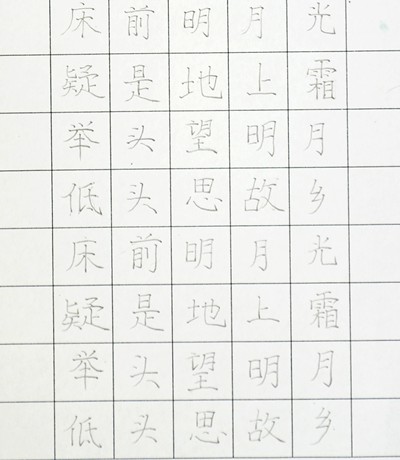 床前明月光
疑是地上霜
举头望明月
低头思故乡
床前明月光
疑是地上霜
举头望明月
低头思故乡